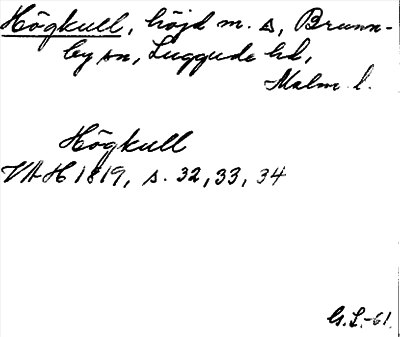 Högkull, höjd m. △, Brunn-
by sn, Luggude hd,
Malm. l.
Högkull
VAH 1819, s. 32, 33, 34
G.L.-61.